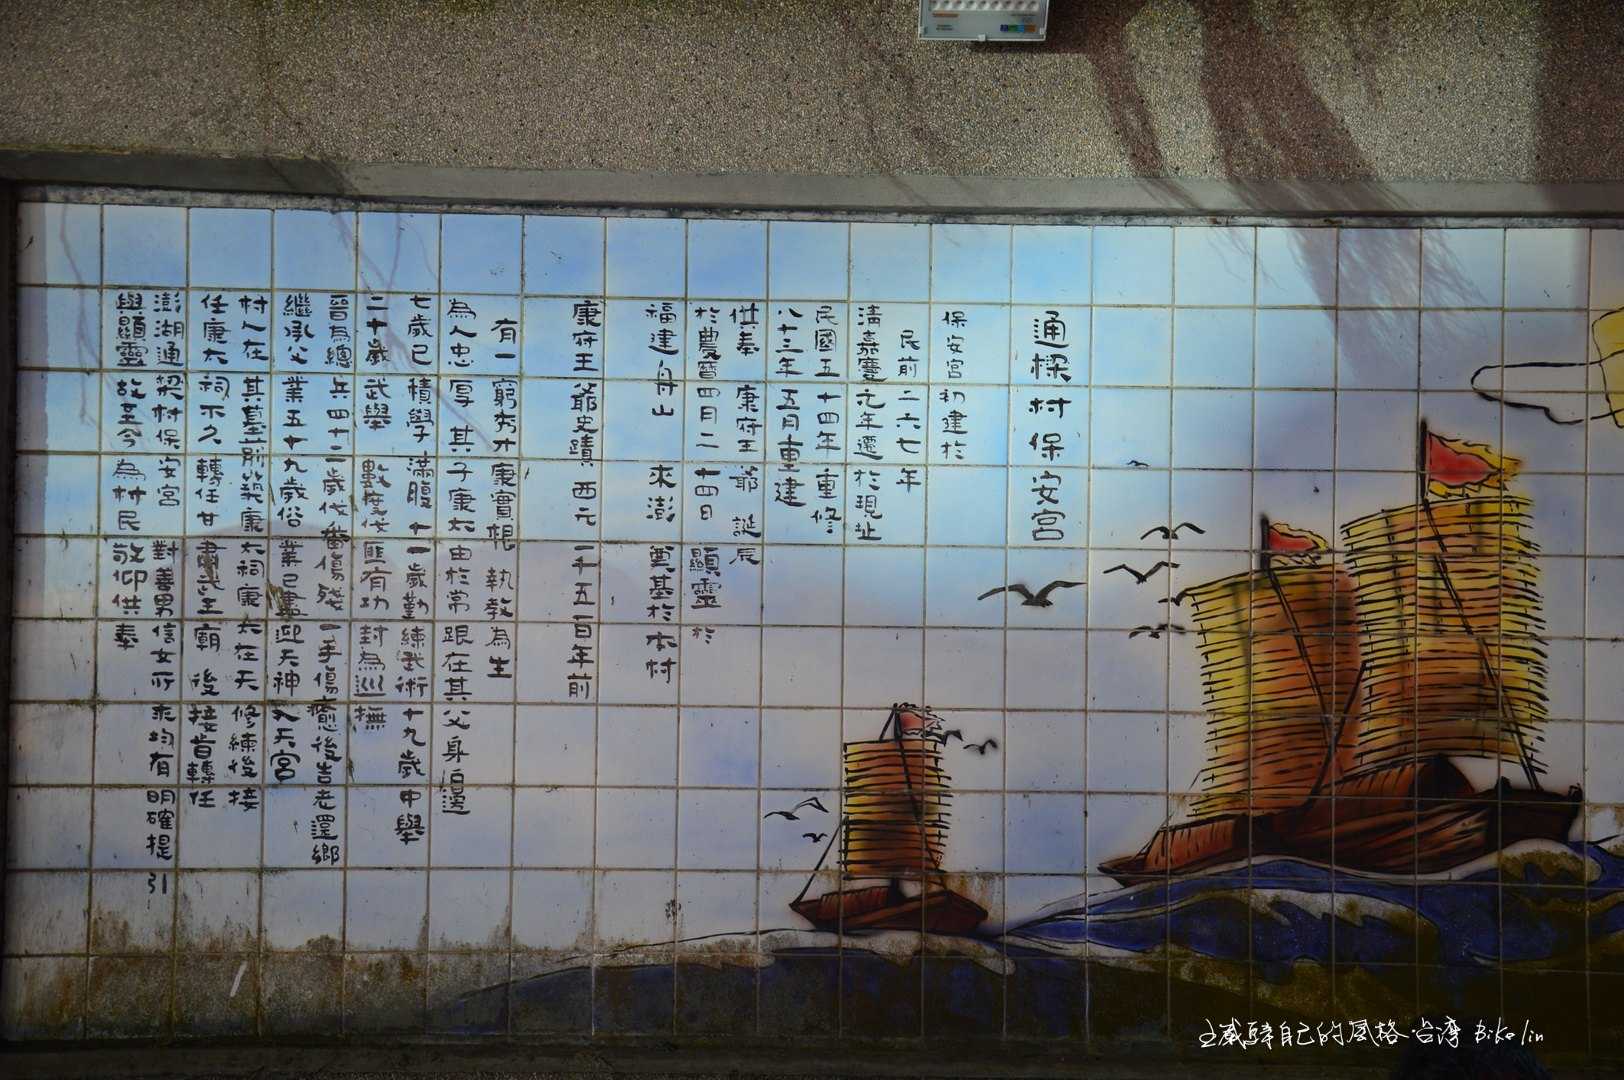 通樑村保安宮
保安宮初建於
民前二六七年
清嘉慶元年遷於現址
民國五十四年重修
八十三年五月重建
供奉 康府王爺 誕辰
於農曆四月二十四日 顯靈於
福建舟山 來澎 奠基於本村
康府王爺史蹟 西元一千五百年前
有一窮秀才康實 執教為生
為人忠厚 其子康 由於常跟在其父身邊
七歲已積學滿腹十一歲勤練武術十九歲中舉
二十歲武舉 數度伐匪有功封為巡撫
晉為總兵四十二歲伐番傷殘一手傷癒後告老還鄉
繼承父業五十九歲俗業已盡迎天神入天宮
村人在其墓前築康 祠康 在天修練後接
任康 祠不久轉任甘肅武王廟 後接旨轉任
澎湖通樑村保安宮 對善男信女所求均有明確提引
與顯靈故至今為村民敬仰供奉
自己的風格.台湾 Biko lin